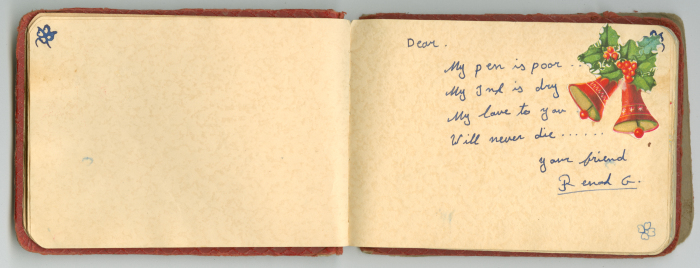 Dear.
My pen is poor ..
My Ink is dry
My love to you ..
Will never die ......
your friend
Renad G.